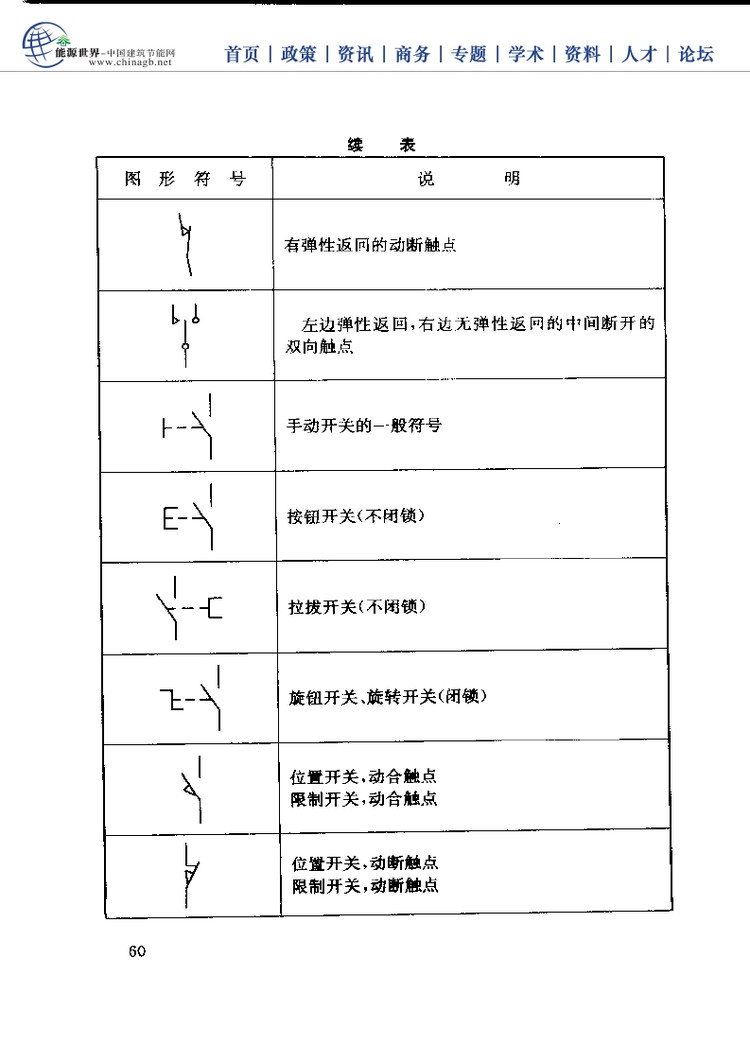 能源世界-中国建筑节能网
www.chinagb.net
首页 | 政策 | 资讯 | 商务 | 专题 | 学术 | 资料 | 人才 | 论坛
续 表
图形符号 说明
有弹性返回的动断触点
左边弹性返回,右边无弹性返回的中间断开的
双向触点
手动开关的一般符号
按钮开关(不闭锁)
拉拔开关(不闭锁)
旋钮开关、旋转开关(闭锁)
位置开关,动合触点
限制开关,动合触点
位置开关,动断触点
限制开关,动断触点
60